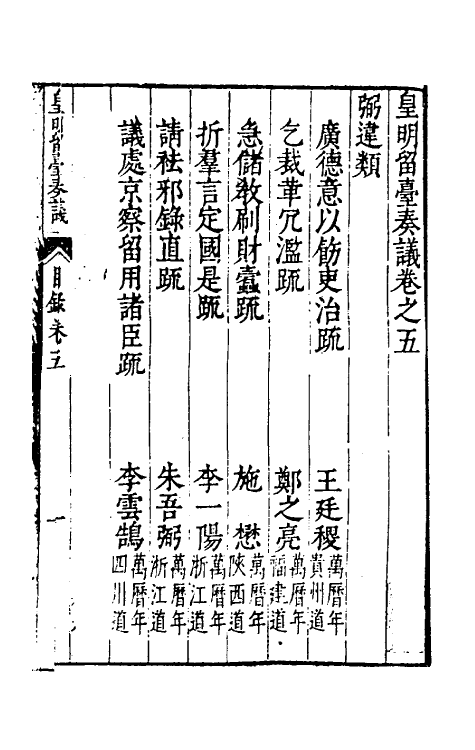 皇明留臺奏議卷之五
弼違類
廣德意以飭吏治疏 王廷稷 萬曆年貴州道
乞裁革冗濫疏 鄭之亮 萬曆年福建道
急儲教刷財蠹疏 施懋 萬曆年陝西道
折羣言定國是疏 李一陽 萬曆年浙江道
請祛邪錄直疏 朱吾弼 萬曆年浙江道
議處京察留用諸臣疏 李雲鵠 萬曆年四川道
皇明留臺奏議 目錄卷五 一